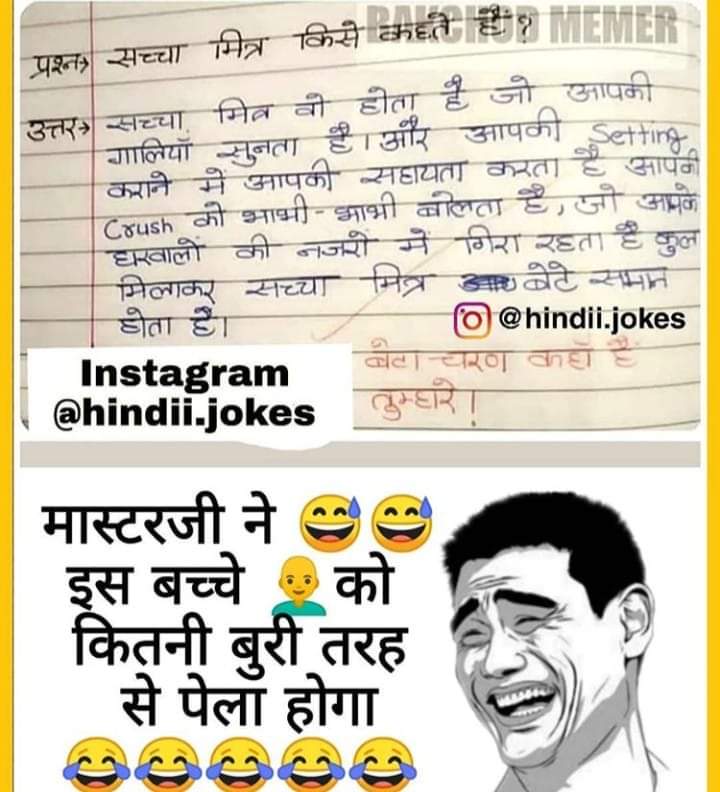 BAKCHOD MEMER
प्रश्न→ सच्चा मित्र किसे कहते हैं?
उत्तर→ सच्चा मित्र वो होता है जो आपकी
गालियाँ सुनता है। और आपकी Setting
कराने में आपकी सहायता करता है आपकी
Crush को भाभी-भाभी बोलता है, जो आपके
घरवालों की नजरों में गिरा रहता है कुल
मिलाकर सच्चा मित्र बेटे समान
होता है।
@hindii.jokes
बेटा चरण कहाँ है
तुम्हारे।
Instagram
@hindii.jokes
मास्टरजी ने 😅😅
इस बच्चे 👨‍🦲को
कितनी बुरी तरह
से पेला होगा
😂😂😂😂😂